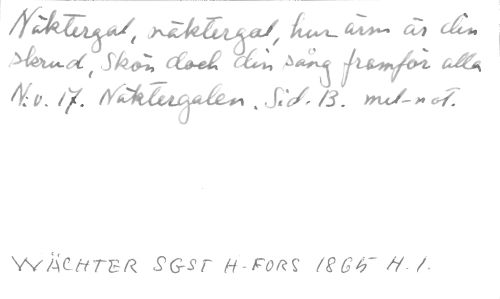 Näktergal, näktergal, hur arm är din
skrud, Skön doch din sång framför alla
N:o. 17. Näktergalen. Sid. 13. mel-not.
WÄCHTER SGST H-FORS 1865 H.1.